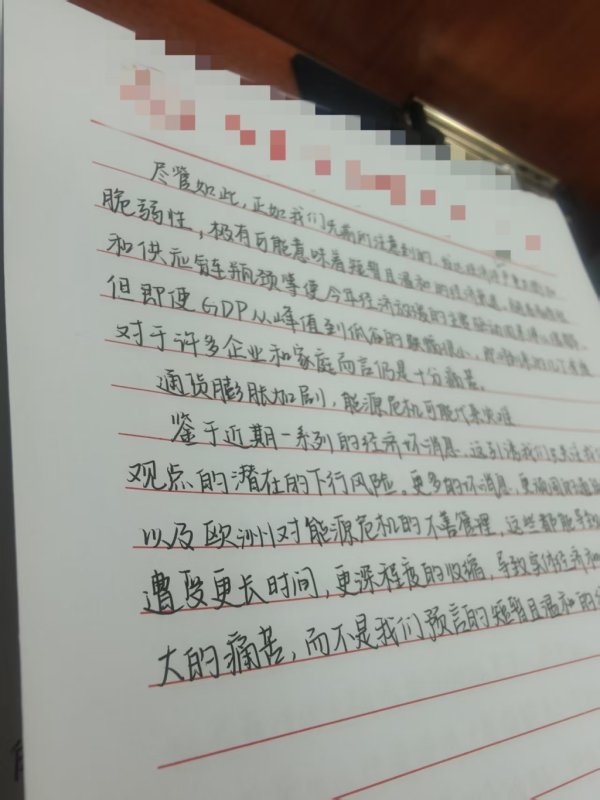 尽管如此,正如我们先前所注意到的,
脆弱性,极有可能意味着短暂且温和的经济衰退,
和供应链瓶颈等使今年经济放缓的主要
但即使GDP从峰值到低谷的跌幅很小,
对于许多企业和家庭而言仍是十分痛苦。
通货膨胀加剧,能源危机可能带来灾难
鉴于近期一系列的经济坏消息,这引诱我们
观点的潜在的下行风险。更多的坏消息,更顽固的通胀
以及欧洲对能源危机的不善管理,这些都能导致
遭受更长时间,更深程度的收缩,导致实体经济
大的痛苦,而不是我们预言的短暂且温和的